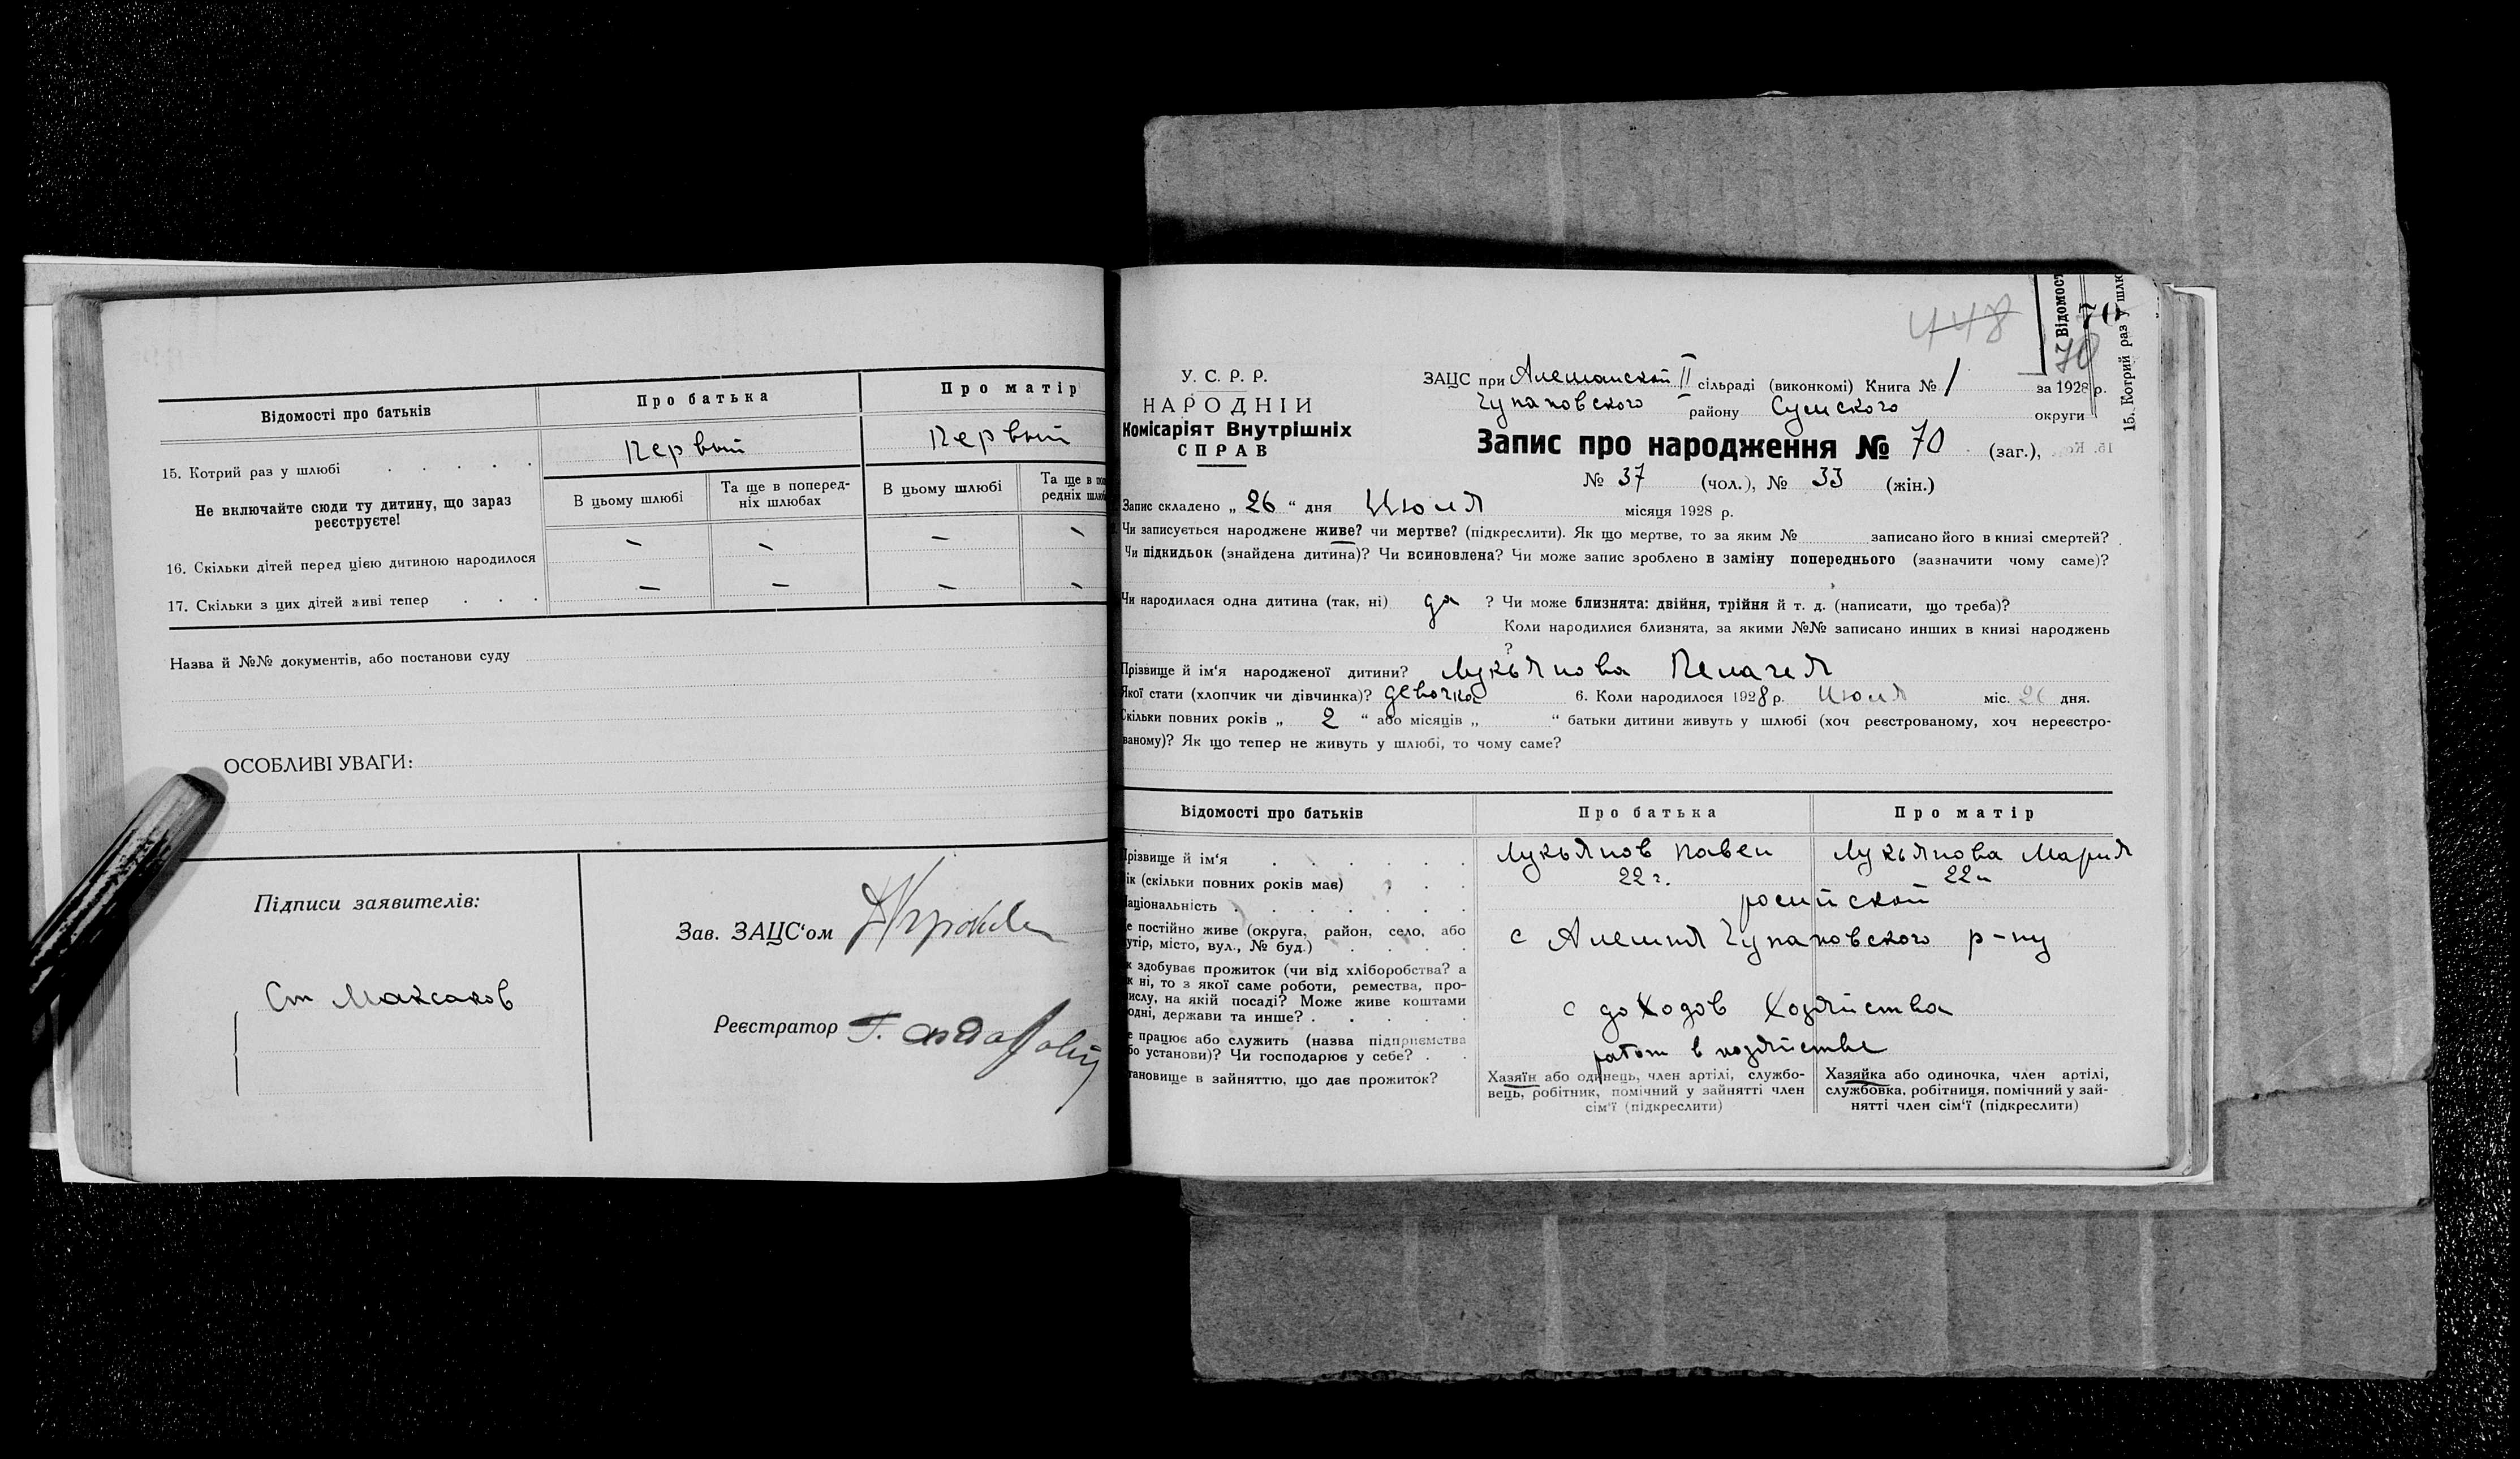 Відомості про батьків
Про батька
Про матір
15. Котрий раз у шлюбі . . . . .
Первый
Первый
Не включайте сюди ту дитину, що зараз
реєструєте!
В цьому шлюбі
Та ще в поперед-
ніх шлюбах
В цьому шлюбі
Та ще в по
редніх шлю
16. Скільки дітей перед цією дитиною народилося
— — — —
17. Скільки з цих дітей живі тепер . . .
— — — —
Назва й №№ документів, або постанови суду
ОСОБЛИВІ УВАГИ:
Підписи заявителів:
Ст Максаков
Зав. ЗАЦС'ом
Реєстратор
448
Відомост
70
70
15. Котрий раз у шлю
У. С. Р. Р.
НАРОДНІЙ
Комісаріят Внутрішніх
СПРАВ
ЗАЦС при Алешанской II сільраді (виконкомі) Книга № 1 за 1928 р.
Чупаховского району Сумского округи
Запис про народження № 70 (заг.),
№ 37 (чол.), № 33 (жін.)
Запис складено „ 26 “ дня Июля місяця 1928 р.
Чи записується народжене живе? чи мертве? (підкреслити). Як що мертве, то за яким № записано його в книзі смертей?
Чи підкидьок (знайдена дитина)? Чи всиновлена? Чи може запис зроблено в заміну попереднього (зазначити чому саме)?
Чи народилася одна дитина (так, ні) да ? Чи може близнята: двійня, трійня й т. д. (написати, що треба)?
Коли народилися близнята, за якими №№ записано инших в книзі народжень
?
Прізвище й ім'я народженої дитини? Лукьянова Пелагея
Якої стати (хлопчик чи дівчинка)? девочка 6. Коли народилося 1928 р. Июля міс. 26 дня.
Скільки повних років „ 2 “ або місяців „ “ батьки дитини живуть у шлюбі (хоч реєстрованому, хоч нереєстро-
ваному)? Як що тепер не живуть у шлюбі, то чому саме?
Відомості про батьків
Про батька
Про матір
Прізвище й ім'я . . . . . .
Лукьянов Павел
Лукьянова Мария
ік (скільки повних років має) . . .
22 г.
22 г
аціональність . . . . . . .
росийской
е постійно живе (округа, район, село, або
утір, місто, вул., № буд.) . . . .
с Алешня Чупаховского р-ну
к здобуває прожиток (чи від хліборобства? а
к ні, то з якої саме роботи, ремества, про-
ислу, на якій посаді? Може живе коштами
одні, держави та инше? . . . . .
с доходов хозяйства
е працює або служить (назва підприємства
бо установи)? Чи господарює у себе? . .
работ в хозяйстве
тановище в зайняттю, що дає прожиток?
Хазяїн або одинець, член артілі, службо-
вець, робітник, помічний у зайнятті член
сім'ї (підкреслити)
Хазяйка або одиночка, член артілі,
службовка, робітниця, помічний у зай-
нятті член сім'ї (підкреслити)